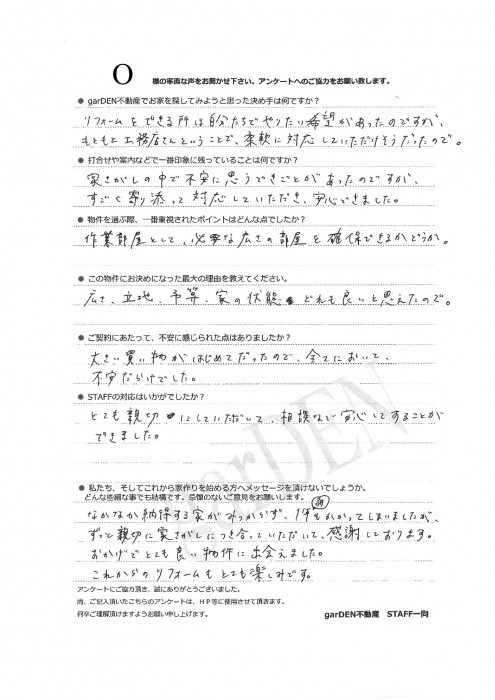 O 様の率直な声をお聞かせ下さい。アンケートへのご協力をお願い致します。
● garDEN不動産でお家を探してみようと思った決め手は何ですか？
リフォームをできる所は自分たちでやりたい希望があったのですが、
もともと工務店さんということで、柔軟に対応していただけそうだったので。
● 打合せや案内などで一番印象に残っていることは何ですか？
家さがしの中で不安に思うできごとがあったのですが、
すごく寄り添って対応していただき、安心できました。
● 物件を選ぶ際、一番重視されたポイントはどんな点でしたか？
作業部屋として、必要な広さの部屋を確保できるかどうか。
● この物件にお決めになった最大の理由を教えてください。
広さ、立地、予算、家の状態 どれも良いと思えたので。
● ご契約にあたって、不安に感じられた点はありましたか？
大きい買い物がはじめてだったので、全てにおいて、
不安だらけでした。
● STAFFの対応はいかがでしたか？
とても親切にしていただいて、相談など安心してすることが
できました。
● 私たち、そしてこれから家作りを始める方へメッセージを頂けないでしょうか。
どんな些細な事でも結構です。忌憚のないご意見をお願いします。
なかなか納得する家がみつからず、1年もかかってしまいましたが、
ずっと親切に家さがしにつき合っていただいて、感謝しております。
おかげでとても良い物件に出会えました。
これからのリフォームもとても楽しみです。
アンケートにご協力頂き、誠にありがとうございました。
尚、ご記入頂いたこちらのアンケートは、ＨＰ等に使用させて頂きます。
何卒ご理解頂けますようお願い申し上げます。
garDEN不動産　STAFF一同
garDEN